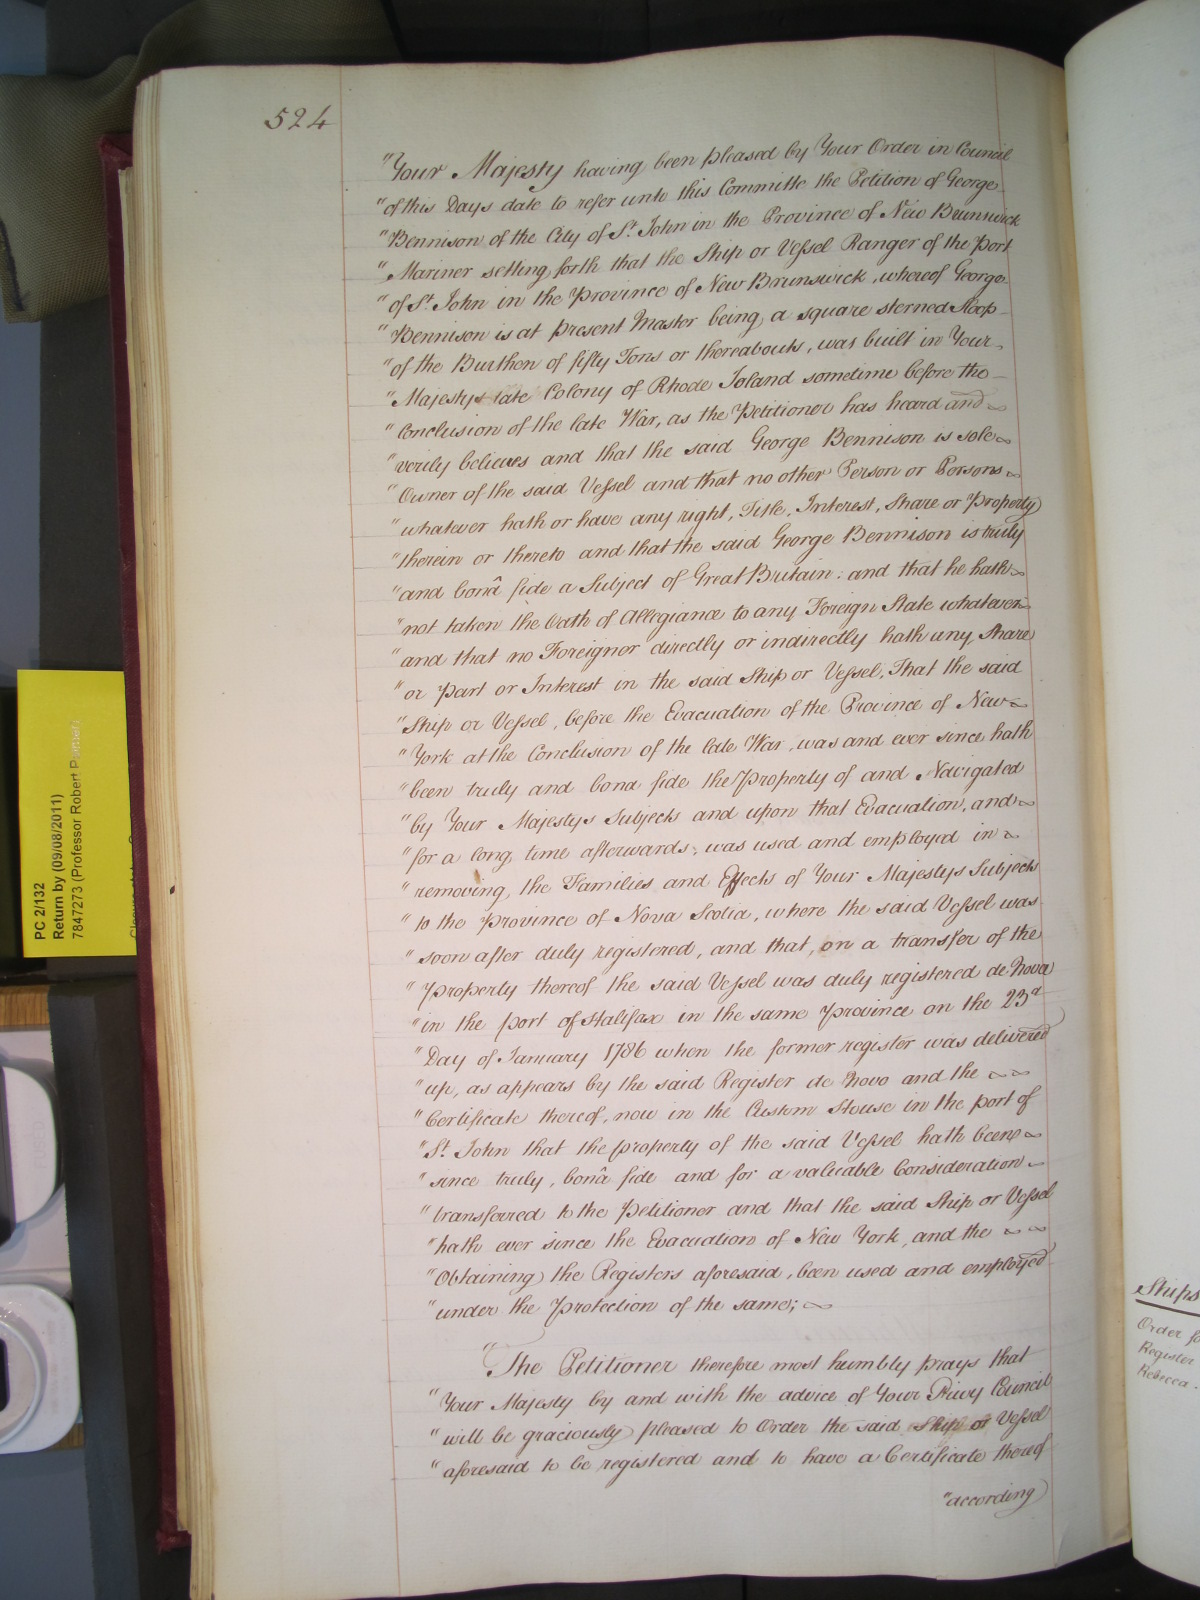 524
"Your Majesty having been pleased by Your Order in Council
"of this Days date to refer unto this Committe the Petition of George
"Bennison of the City of St. John in the Province of New Brunswick
"Mariner setting forth that the Ship or Vessel Ranger of the Port
"of St. John in the Province of New Brunswick, whereof George
"Bennison is at present Master being a square sterned Sloop
"of the Burthen of fifty Tons or thereabouts, was built in Your
"Majestys late Colony of Rhode Island sometime before the
"Conclusion of the late War, as the Petitioner has heard and
"verily believes and that the said George Bennison is sole
"Owner of the said Vessel and that no other Person or Persons
"whatever hath or have any right, Title, Interest, Share or Property
"therein or thereto and that the said George Bennison is truly
"and bonâ fide a Subject of Great Britain: and that he hath
"not taken the Oath of Allegiance to any Foreign State whatever
"and that no Foreignor directly or indirectly hath any Share
"or Part or Interest in the said Ship or Vessel, That the said
"Ship or Vessel, before the Evacuation of the Province of New
"York at the Conclusion of the late War, was and ever since hath
"been truly and bona fide the Property of and Navigated
"by Your Majestys Subjects and upon that Evacuation, and
"for a long time afterwards, was used and employed in
"removing the Families and Effects of Your Majestys Subjects
"to the Province of Nova Scotia, where the said Vessel was
"soon after duly registered, and that, on a transfer of the
"Property thereof the said Vessel was duly registered de Novo
"in the port of Halifax in the same Province on the 23d
"Day of January 1786 when the former register was delivered
"up, as appears by the said Register de Novo and the
"Certificate thereof, now in the Custom House in the port of
"St. John that the property of the said Vessel hath been
"since truly, bonâ fide and for a valuable Consideration
"transferred to the Petitioner and that the said Ship or Vessel
"hath ever since the Evacuation of New York, and the
"Obtaining the Registers aforesaid, been used and employed
"under the Protection of the same;
"The Petitioner therefore most humbly prays that
"Your Majesty by and with the advice of Your Privy Council
"will be graciously pleased to Order the said Ship or Vessel
"aforesaid to be registered and to have a Certificate thereof
"according
PC 2/132
Return by (09/08/2011)
7847273 (Professor Robert
Ships
Order fo
Register
Rebecca.